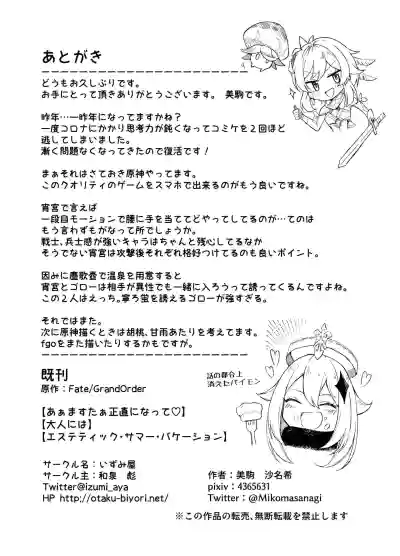 あとがき
どうもお久しぶりです。
お手にとって頂きありがとうございます。 美駒です。
昨年…一昨年になってますかね？
一度コロナにかかり思考力が鈍くなってコミケを２回ほど
逃してしまいました。
漸く問題なくなってきたので復活です！
まぁそれはさておき原神やってます。
このクオリティのゲームをスマホで出来るのがもう良いですね。
宵宮で言えば
一段目モーションで腰に手を当ててどやってしてるのが…てのは
もう言わずもがなって所でしょうか。
戦士、兵士感が強いキャラはちゃんと残心してるなか
そうでない宵宮は攻撃後それぞれ格好つけてるのも良いポイント。
因みに塵歌壺で温泉を用意すると
宵宮とゴローは相手が異性でも一緒に入ろうって誘ってくるんですよね。
この２人はえっち。寧ろ蛍を誘えるゴローが強すぎる。
それではまた。
次に原神描くときは胡桃、甘雨あたりを考えてます。
fgoをまた描いたりするかもですが。
既刊
原作：Fate/GrandOrder
【あぁますたぁ正直になって♡】
【大人には】
【エステティック・サマー・バケーション】
話の都合上
消えたパイモン
サークル名：いずみ屋
サークル主：和泉 彪
Twitter@izumi_aya
HP http://otaku-biyori.net/
作者：美駒 沙名希
pixiv：4365631
Twitter：@Mikomasanagi
※この作品の転売、無断転載を禁止します